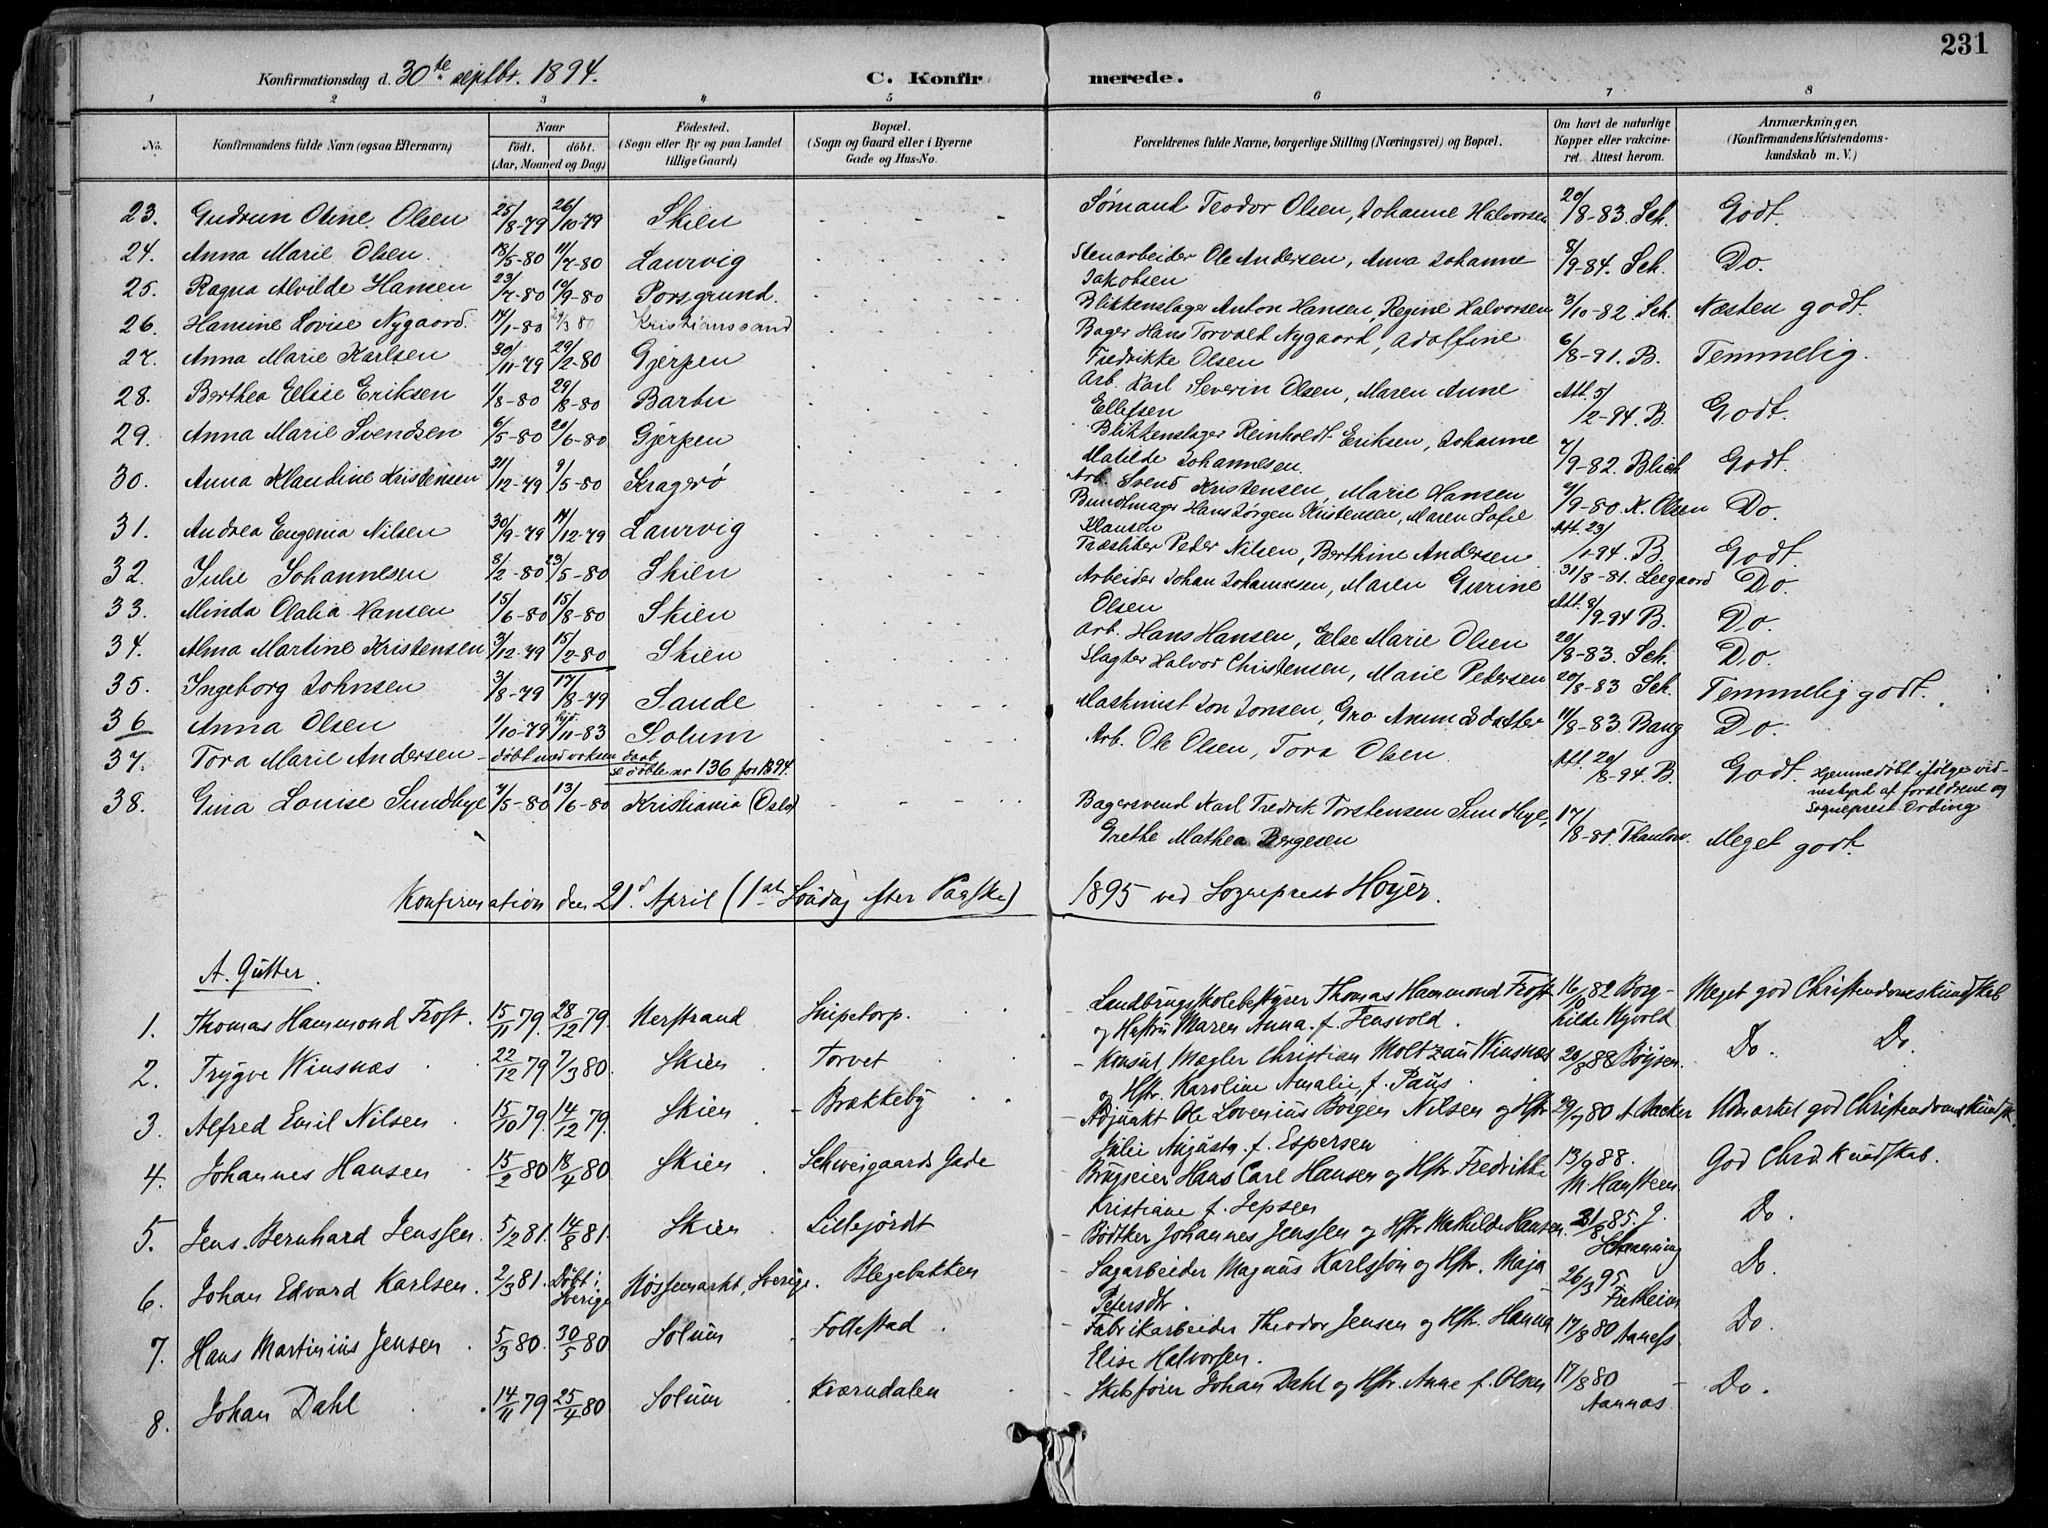 231
Konfirmationsdag d. 30te septbr. 1894.
C. Konfirmerede.
1 2 3 4 5 6 7 8
No. Konfirmandens fulde Navn (ogsaa Efternavn) Naar født. døbt. (Aar, Maaned og Dag) Fødested. (Sogn eller By og paa Landet tillige Gaard) Bopæl. (Sogn og Gaard eller i Byerne Gade og Hus-No. Forældrenes fulde Navne, borgerlige Stilling (Næringsvei) og Bopæl. Om havt de naturlige Kopper eller vakcineret. Attest herom. Anmærkninger, (Konfirmandens Kristendomskundskab m. V.)
23. Gudrun Oline Olsen 25/8-79 26/10-79 Skien Sømand Teodor Olsen, Johanne Halvorsen 20/8-83. Sch. Godt.
24. Anna Marie Olsen. 18/5-80 11/7-80 Laurvig Stenarbeider Ole Andersen, Anna Johanne Jakobsen 8/9-84. Sch. Do.
25. Ragna Alvilde Hansen 23/7-80 10/9-80 Porsgrund. Blikkenslager Anton Hansen, Regine Halvorsen 3/10-82. Sch. Næsten godt.
26. Hansine Lovise Nygaard. 14/1-80 29/3 80 Kristianssand Bager Hans Torvald Nygaard, Adolfine Fredrikke Olsen 6/8-91. B. Temmelig.
27. Anna Marie Karlsen 30/11-79 29/2-80 Gjerpen Arb. Karl Severin Olsen, Maren Anne Ellefsen Att. 5/2-94. B. Godt.
28. Berthea Elise Eriksen 1/8-80 29/8-80 Barbu Blikkenslager Reinholdt Eriksen, Johanne Matilde Johannesen. 7/9-82. Blich Godt.
29. Anna Marie Svendsen 6/5-80 20/6-80 Gjerpen Arb. Svend Kristensen, Marie Hansen 4/9-80. K. Olsen Do.
30. Anna Klaudine Kristensen 31/12-79 9/5-80 Kragerø Bundtmager Hans Jørgen Kristensen, Maren Sofie Klausen Att. 23/1-94. B Godt.
31. Andrea Eugenia Nilsen 30/9-79 14/12-79 Laurvig Træsliber Peder Nilsen, Berthine Andersen 31/8-81. Leegaard Do.
32. Julie Johannesen 8/2-80 23/5-80 Skien Arbeider Johan Johannesen, Maren Gurine Olsen Att. 8/9-94 B. Do.
33. Minda Olalia Hansen 15/6-80 15/8-80 Skien Arb. Hans Hansen, Else Marie Olsen 20/8-83. Sch. Do.
34. Alma Martine Kristensen 3/12-79 15/2-80 Skien Slagter Halvor Christensen, Marie Pedersen 20/8-83 Sch. Temmelig godt.
35. Ingeborg Johnsen 3/8-79 17/8-79 Sande Maskinist Jon Jonsen, Gro Amundsdatter 11/9-83 Bang Do.
36 Anna Olsen 1/10-79 hjd. 1/11-83 Solum Arb. Ole Olsen, Tora Olsen. Att. 20/8-94. B. Godt. Hjemmedøbt ifølge vidnesbyrd af forældrene og Sogneprest Ording
37. Tora Marie Andersen - døbt med voksen daab se døbte nr 136 for 1894.
38. Gina Louise Sundbye 7/5-80 13/6-80 Kristiania (Oslo) Bagersvend Karl Fredrik Torstensen Sundbye, Grethe Mathea Børgesen 17/8-81 Thaulow. Meget godt.
Konfirmation den 21d April (1st Søndag efter Paaske) 1895 ved Sogneprest Hoyer.
A. Gutter.
1. Thomas Hammond Frost. 15/11 79. 28/12 79. Nerstrand Snipetorp. Landbrugsskolebestyrer Thomas Hammond Frost og Hustru Maren Anna f. Jensvold. 16/10 82 Borghilde Nyvold Meget god Christendomskundskab
2. Trygve Winsnæs 22/12 79 7/3 80. Skien Torvet - Konsul, Mægler Christian Moltzau Winsnæs og Hstr. Karoline Amalie f. Paus. 20/8 88 Böysen. Do. Do.
3. Alfred Emil Nilsen 15/10 79. 14/12 79. Skien - Brækkeby - Adjunkt Ole Lovenius Borgen Nilsen og Hstr Julie Augusta f. Espersen 29/7 80 A Aacker Udmærket god Christendomskundsk.
4. Johannes Hansen 15/2 80 18/4 80. Skien Schweigaards Gade Brugseier Hans Carl Hansen og Hstr. Fredrikke Kristiane f. Jepsen 13/9 88. M. Hansteen God Chrd. Kundskab.
5. Jens Bernhard Jenssen. 5/2 81. 14/8 81. Skien Lillejordt - Bødtker Johannes Jenssen og Hstr Mathilde Hansen. 31/8 85. J. Henning Do.
6. Johan Edvard Karlsen. 2/3 81. Døbt i Sverige Nössemarkt, Sverige. Blegebakken - Sagarbeider Magnus Karlsson og Hstr. Maja Petersdtr. 26/3 95. Fretheim Do.
7. Hans Martinius Jensen 5/3 80. 30/5 80 Solum Follestad - Fabrikarbeider Theodor Jensen og Hstr. Hanna Elise Halvorsen. 17/8 80 Aaness Do.
8. Johan Dahl 14/11 79 25/4 80 Solum Kværndalen - Skibsfører Johan Dahl og Hstr. Anne f. Olsen 17/8 80 Aannæs. Do.